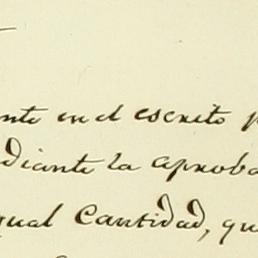 nte en el escrito p
diante la aproba
gual Cantidad, qu